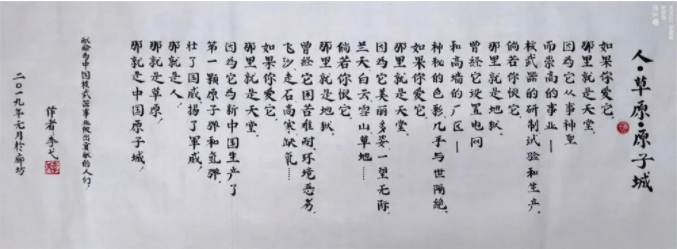 人·草原·原子城
如果你爱它，
那里就是天堂。
因为它从事神圣
而崇高的事业——
核武器的研制试验和生产。
倘若你恨它，
那里就是地狱。
曾经它设置电网
和高墙的厂区——
神秘的色彩几乎与世隔绝。
如果你爱它，
那里就是天堂。
因为它美丽多姿一望无际，
兰天白云雪山草地……
倘若你恨它，
那里就是地狱。
曾经它困苦难耐，环境恶劣，
飞沙走石高寒缺氧……
如果你爱它，
那里就是天堂。
因为它为新中国生产了
第一颗原子弹和氢弹，
壮了国威，扬了军威，
那就是人，
那就是草原，
那就是中国原子城！
献给为中国核武器事业做出贡献的人们！
作者 李弋
二〇一九年元月於廊坊